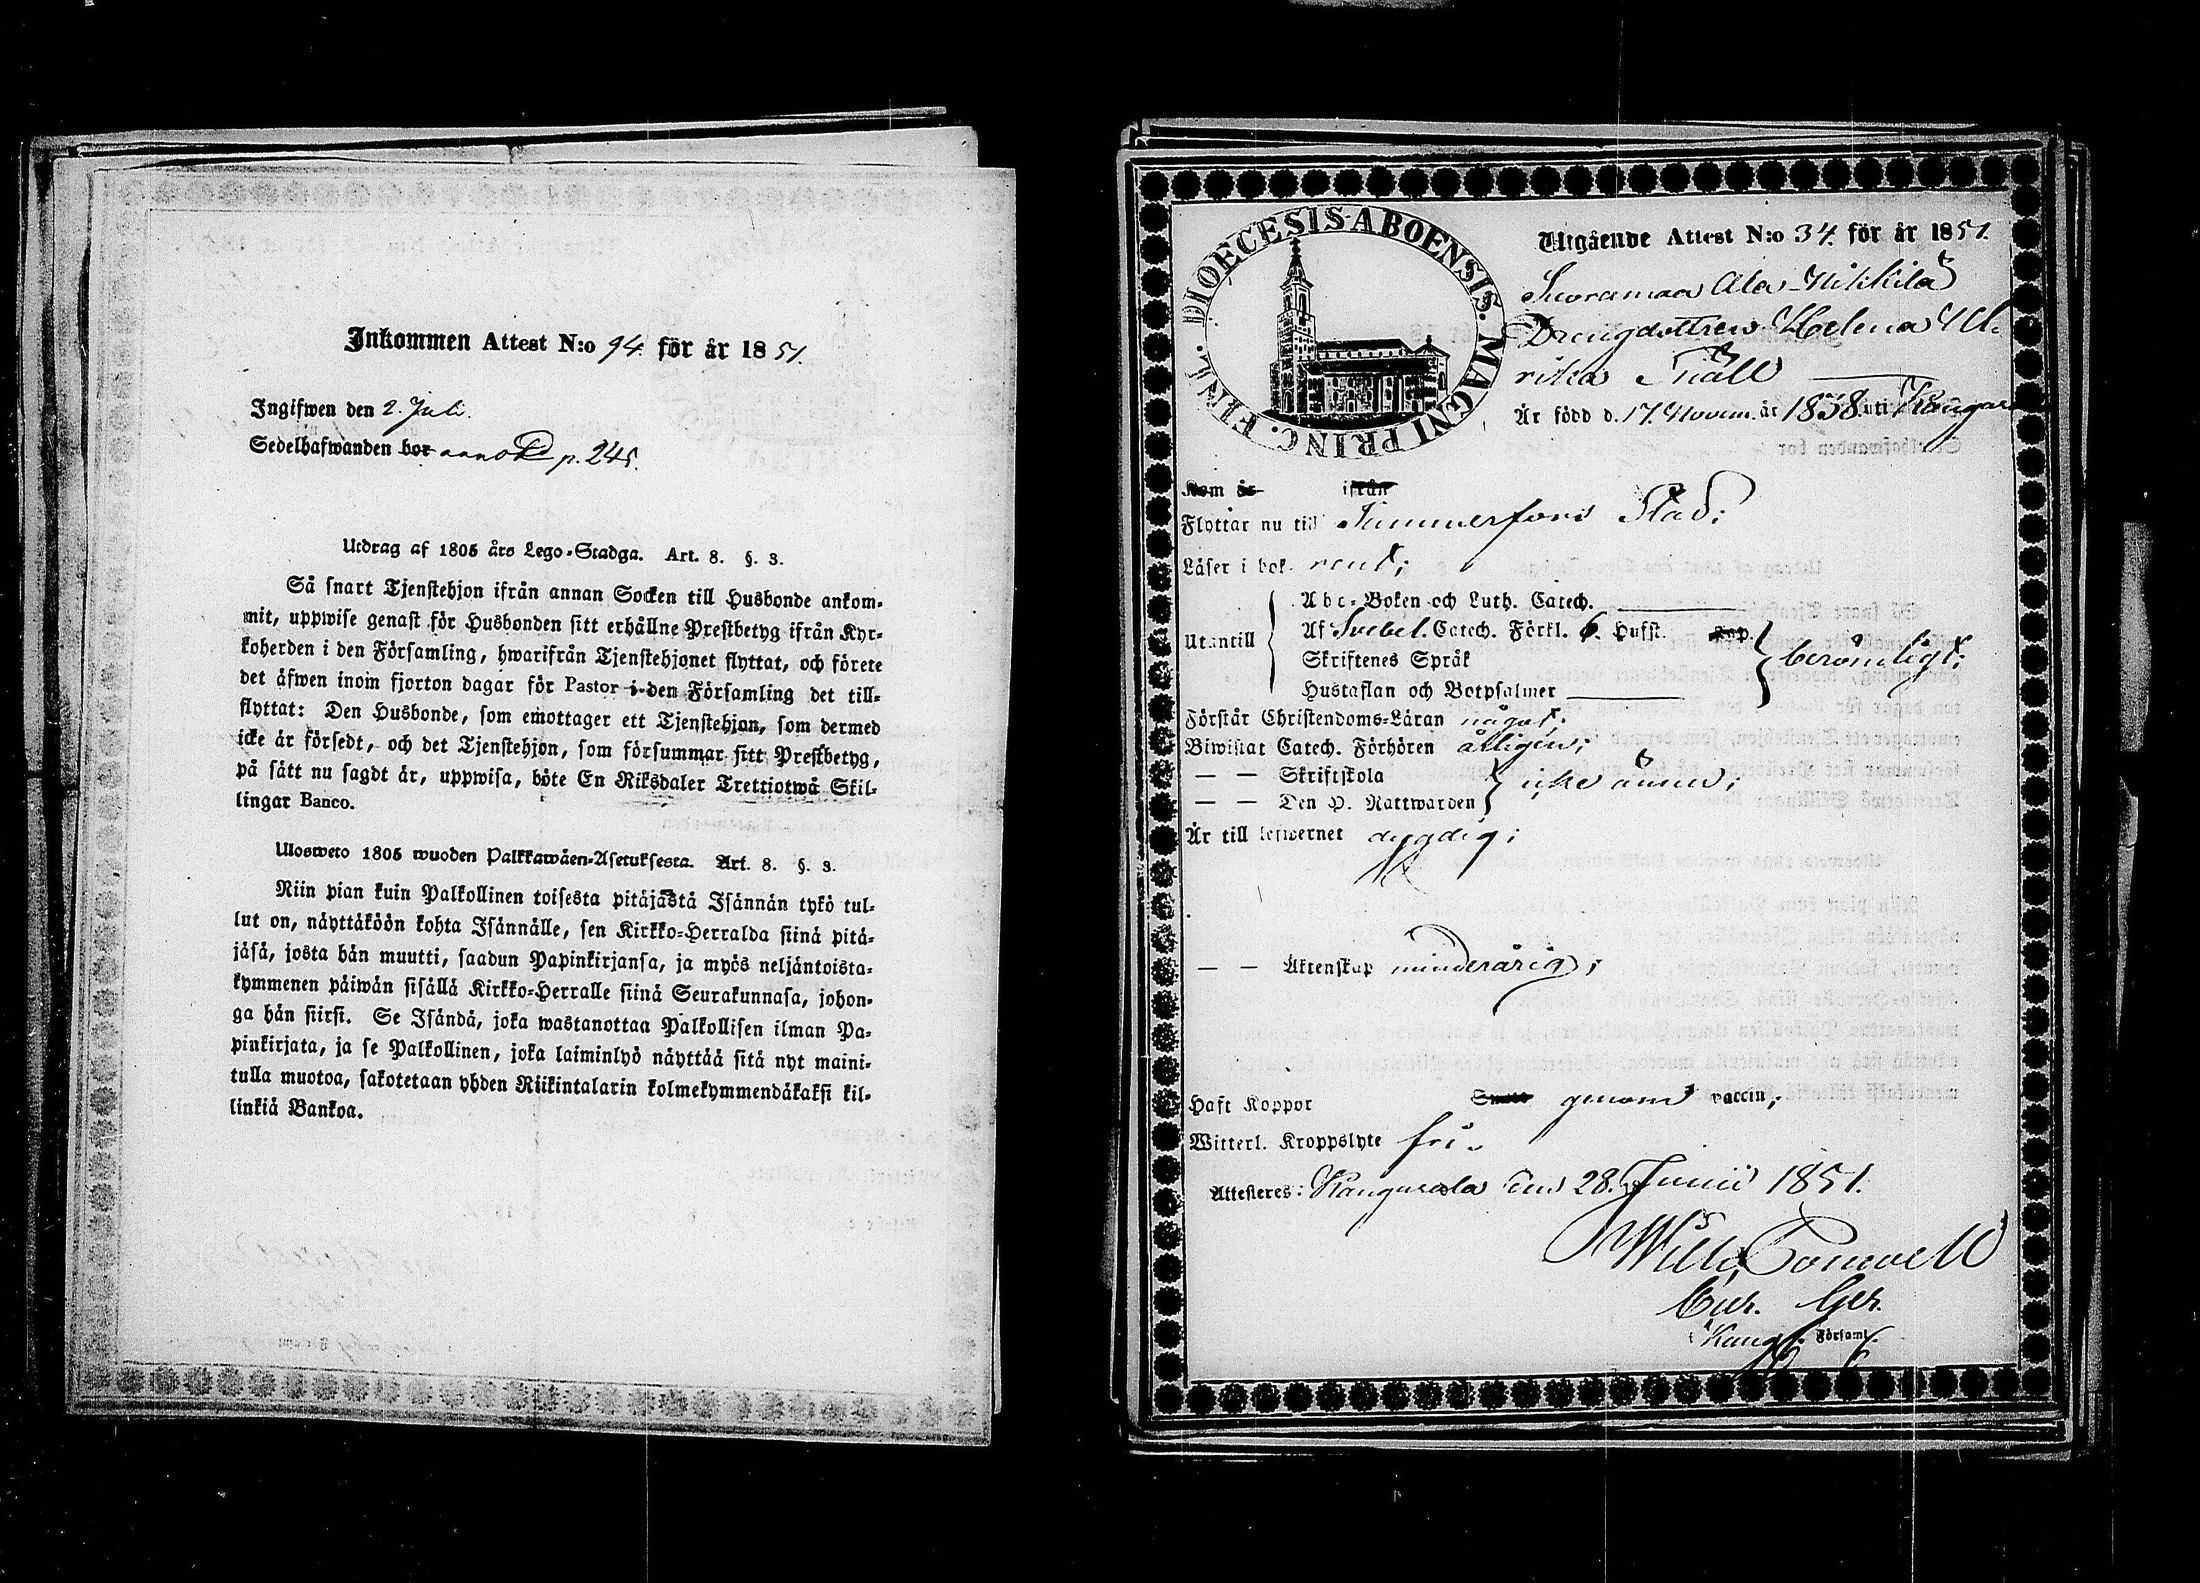 Inkommen Attest N:o 94. för år 1851.
Ingifwen den 2. Juli.
Sedelhafwanden bor p. 245.
Utdrag af 1805 års Lego-Stadga. Art. 8. §. 3.
Så snart Tjenstehjon ifrån annan Socken till Husbonde ankom-
mit, uppwise genast för Husbonden sitt erhållne Prestbetyg ifrån Kyr-
koherden i den Församling, hwarifrån Tjenstehjonet flyttat, och förete
det äfwen inom fjorton dagar för Pastor i den Församling det till-
flyttat: Den Husbonde, som emottager ett Tjenstehjon, som dermed
icke är försedt, och det Tjenstehjon, som försummar sitt Prestbetyg,
på sätt nu sagdt är, uppwisa, böte En Riksdaler Trettiotwå Skil-
lingar Banco.
Ulosweto 1805 wuoden Palkkawäen-Asetuksesta. Art. 8. §. 3.
Niin pian kuin Palkollinen toisesta pitäjästä Isännän tykö tul-
lut on, näyttäköön kohta Isännälle, sen Kirkko-Herralda siinä pitä-
jäsä, josta hän muutti, saadun Papinkirjansa, ja myös neljäntoista-
kymmenen päiwän sisällä Kirkko-Herralle siinä Seurakunnasa, johon-
ga hän siirsi. Se Isändä, joka wastanottaa Palkollisen ilman Pa-
pinkirjata, ja se Palkollinen, joka laiminlyö näyttää sitä nyt maini-
tulla muotoa, sakotetaan yhden Riikintalarin kolmekymmendäkaksi kil-
linkiä Bankoa.
DIOECESIS ABOENSIS. MAGNI PRINC. FINL.
Utgående Attest N:o 34. för år 1851.
Suoramaa Ala-Nikkilä
Drengdottren Helena Ul-
rika Snäll
Är född d. 17. Novem. år 1838 uti Kangas
Kom år ifrån
Flyttar nu till Tammerfors Stad;
Läser i bok rent;
Abc-Boken och Luth. Catech.
Utantill Af Svebel. Catech. Förkl. 6. Hufst. Kap. berömligt;
Skriftenes Språk
Hustaflan och Botpsalmer
Förstår Christendoms-Läran något;
Biwistat Catech. Förhören årligen;
— — Skriftskola icke ännu;
— — Den H. Nattwarden
Är till lefwernet dygdig;
— — Äktenskap minderårig;
Haft Koppor genom vaccin;
Witterl. Kroppslyte fri.
Attesteres: Kangasala den 28. Junii 1851.
Cur. Ger.
i Kang. Församl.